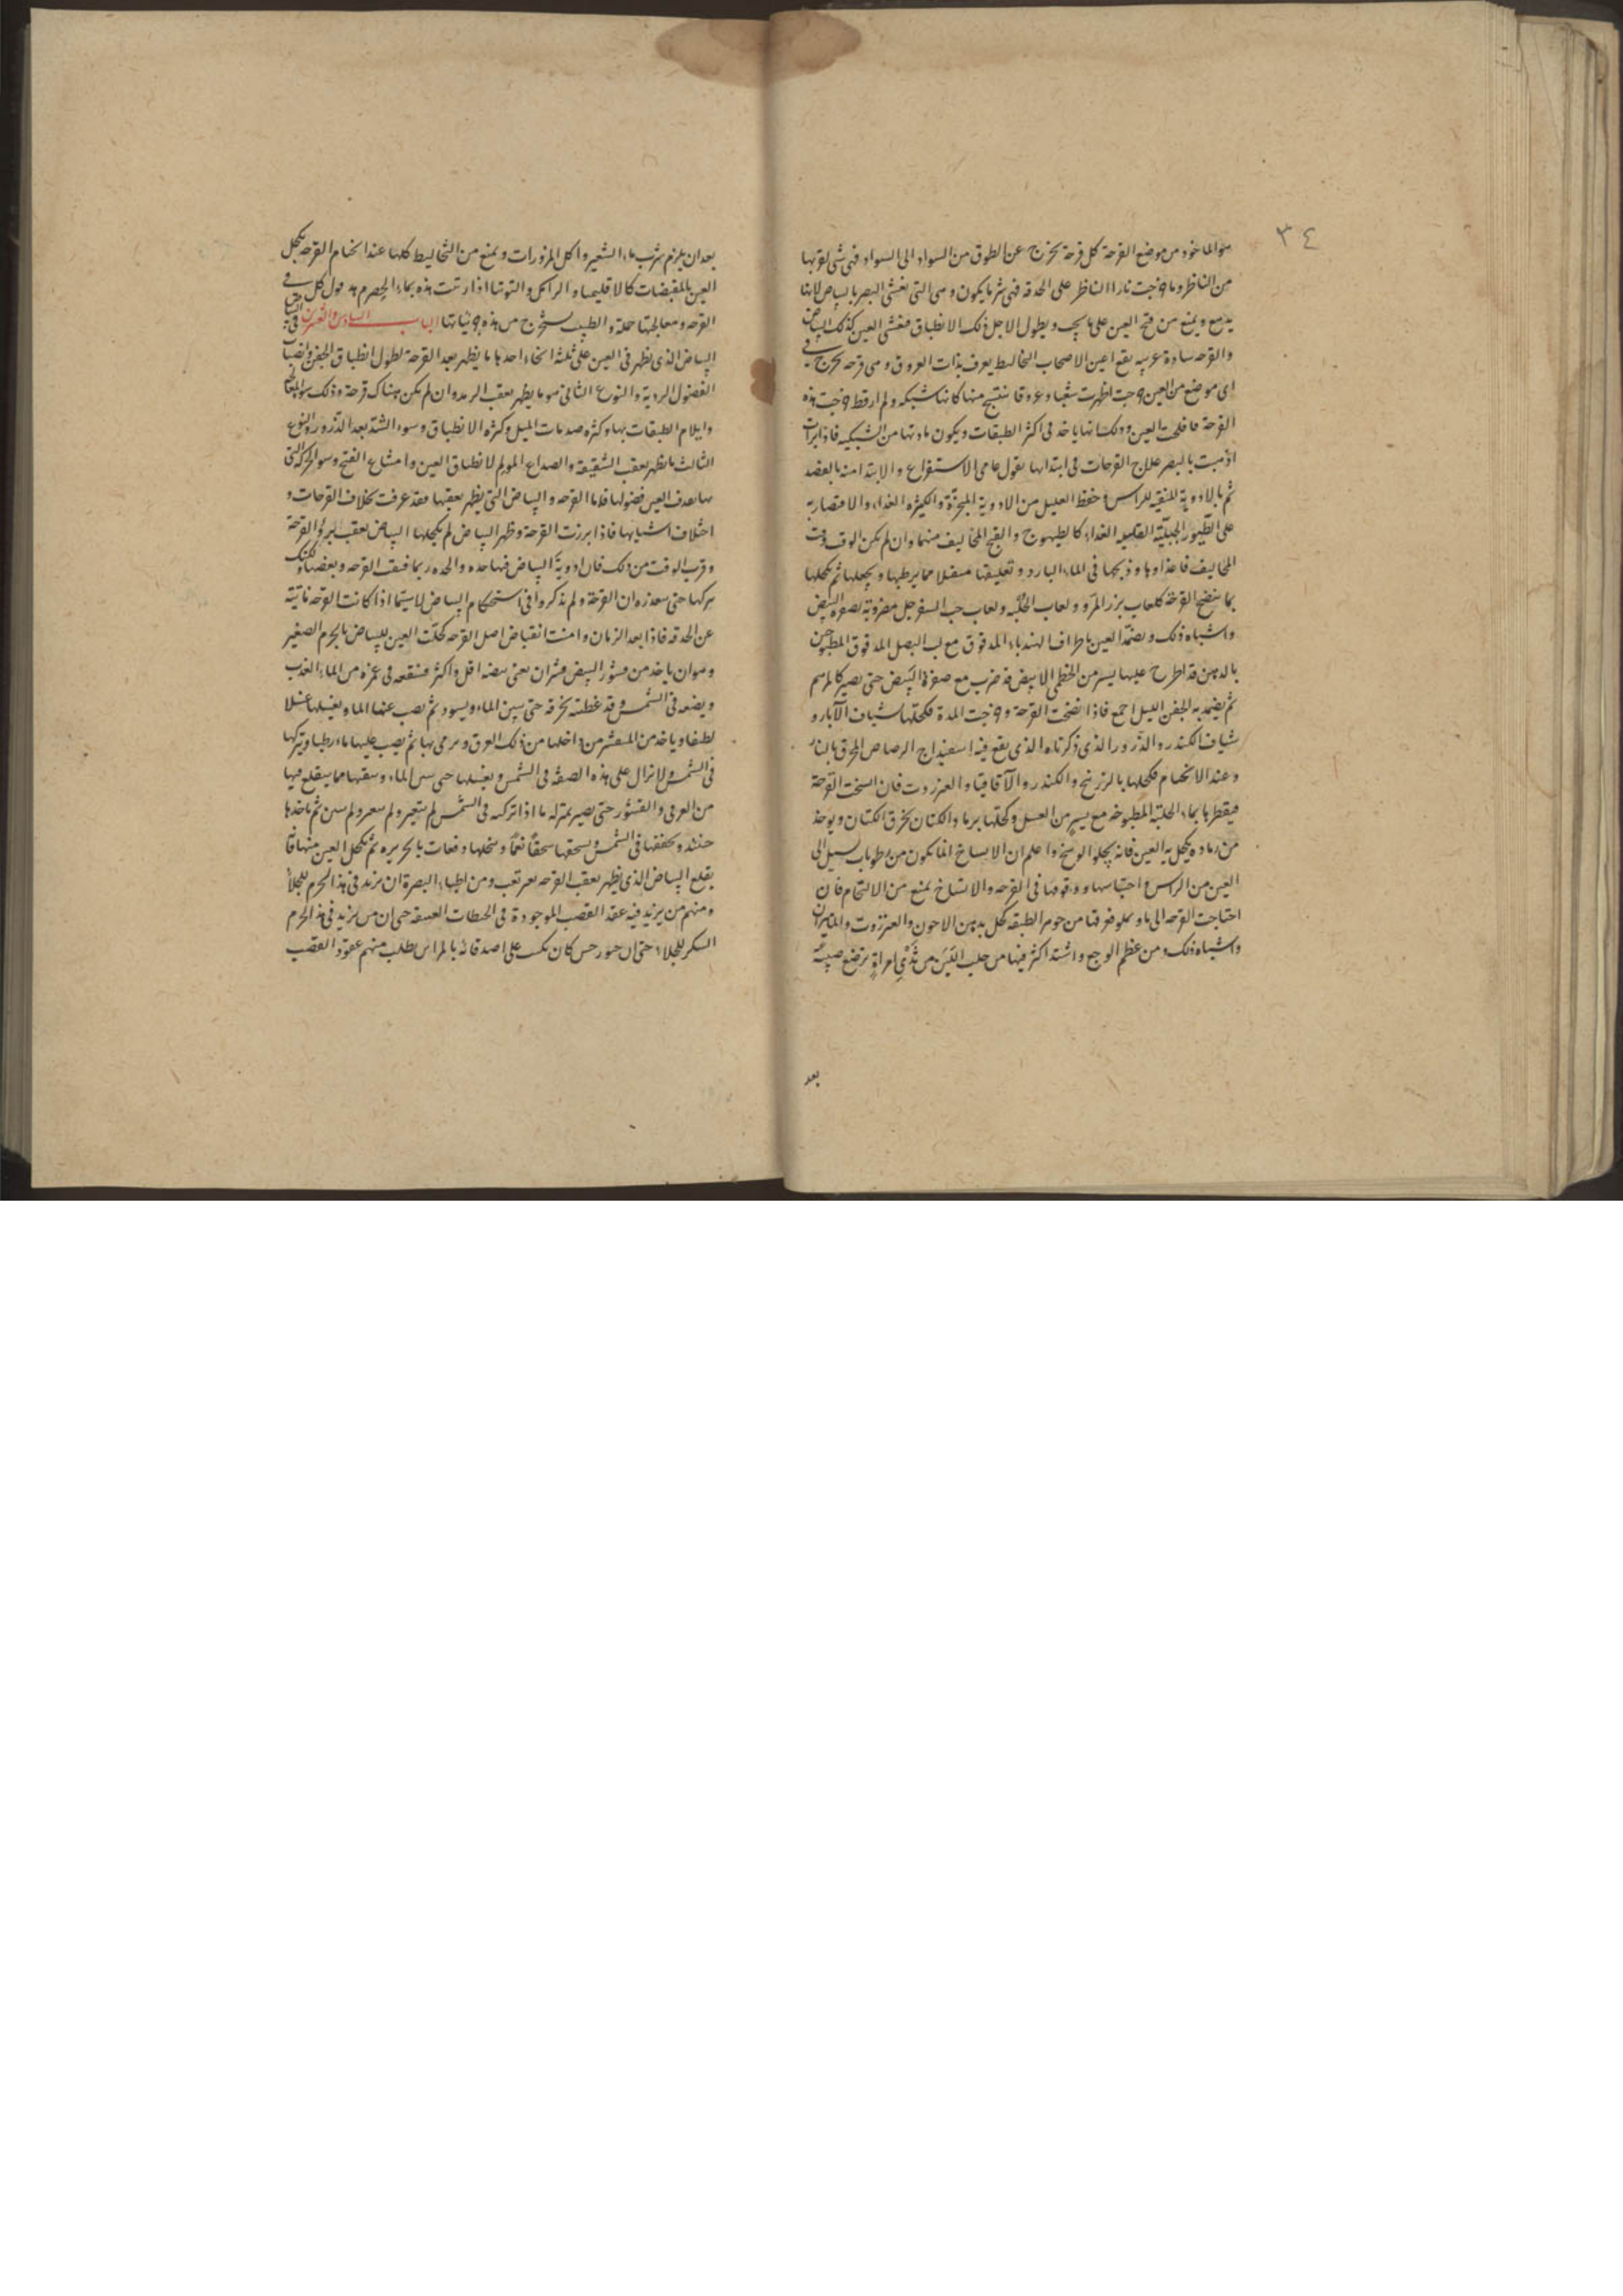 ٣٤
هو الماخوذ من موضع القرحة كل قرحة تخرج عن الطوق من السواد الى السواد فهى شى لقربها
من الناظر وما خرجت نارا الناظر على الحدقه فهى شر ما يكون وهى التى تغشى البصر بالبياض لانها
تدمع ويمنع من فتح العين على ما يجب ويطول لاجل ذلك الانطباق فتغشى العين كذلك البياض
والقرحه سادة غريبه يقع اعين لاصحاب التخاليط يعرف بذات العروق وهى قرحه تخرج فى
اى موضع من العين خرجت اظهرت شعبا وعروقا ينتسج منها كانها شبكه ولم ار قط خرجت هذه
القرحة فافلحت العين وذلك انها ياخذ فى اكثر الطبقات ويكون مادتها من الشبكيه فاذا برات
اذهبت بالبصر علاج القرحات فى ابتدائها يقول عامى الاستفراغ والابتدا منه بالفصد
ثم بالادوية المنقيه للراس وحفظ العليل من الادوية المبخرة والكثيره الغذاء والاقتصار به
على الطيور الجبلية القليله الغذاء كالطيهوج والقبج المخاليف منهما وان لم يكن الوقت وقت
المخاليف فاغذاوها وذبحها فى الماء البارد وتعليقها مثقلا مما يرطبها ويجملها ثم تكحلها
بما ينضج القرحة كلعاب بزر المرو ولعاب الحلبه ولعاب حب السفرجل مضروبة بصفرة البيض
واشباه ذلك ويضمد العين باطراف الهندباء المدقوق مع لب البصل المدقوق المطبوخين
بالدهن قد اطرح عليها يسير من الخطمى الابيض قد ضرب مع صفرة البيض حتى يصير كالمرهم
ثم يضمد به الجفن العليل اجمع فاذا نضجت القرحة وخرجت المدة فكحلها بشياف الآبار و
شياف الكندر والذرور الذى ذكرناه الذى يقع فيه اسفيداج الرصاص المحرق بالنار
وعند الالتحام فكحلها بالزرنيخ والكندر والاقاقيا والعنزروت فان اتسخت القرحة
فيقطر بها بماء الحلبة المطبوخه مع يسير من العسل وكحلها برماد الكتان بخرق الكتان ويوخذ
من رماده يكحل به العين فانه يجلو الوسخ واعلم ان الاتساخ انما يكون من رطوبات تسيل الى
العين من الراس واحتباسها ووقوفها فى القرحه والاتساخ يمنع من الالتحام فان
احتاجت القرحه الى ما يملو فوقها من جوهر الطبقه كحل بدهن الاحون والعنزروت والماميران
واشباه ذلك ومن عظم الوجع واشتد اكثر فيها من حلب اللبن من ثدى امراة ترضع صبية
بعد
بعد ان يلزم شرب ماء الشعير واكل المزورات ويمنع من التخاليط كلها عند التحام القرحه يكحل
العين بالمقبضات كالاقليميا والراسكى والتوتيا اذا ربت هذه بماء الحصرم قول كل فى
القرحه ومعالجتها جملة والطبيب يستخرج من هذه جزئياتها الباب السادس والعشرين فى البياض
البياض الذى يظهر فى العين على ثلثه انحاء احدها ما يظهر بعد القرحة لطول انطباق الجفن وانصباب
الفضول الردية والنوع الثانى هو ما يظهر بعقب الرمد وان لم يكن هناك قرحة وذلك لسوء العلاج
وايلام الطبقات بها وكثره صدمات الميل وكثره الانطباق وسوء الشد بعد الذرور والنوع
الثالث ما يظهر بعقب الشقيقة والصداع المولم لانطباق العين وامتناع الفتح وسو الحركه التى
بها تعدف العين فضولها فاما القرحه والبياض التى يظهر بعقبها فقد عرفت بخلاف القرحات و
اختلاف اشباهها فاذا برزت القرحة وظهر البياض لم يكحلها البياض بعقب بروز القرحة
وقرب الوقت من ذلك فان ادوية البياض فيها حده والحده ربما فتقت القرحه وبعضها لكنك
تتركها حتى ان القرحة ولم يذكروا فى استحكام البياض لا سيما اذا كانت القرحه ناتية
عن الحدقه فاذا بعد الزمان وامنت انقباض اصل القرحه كحلت العين للبياض بالجرم الصغير
وهو ان ياخذ من قشور البيض قشران يعنى بيضه اقل واكثر فتنقعه فى غمره من الماء العذب
ويضعه فى الشمس وقد غطيته بخرقه حتى ينتن الماء ويسود ثم يصب عنها الماء ويغسلها غسلا
لطيفا وياخذ من المقشر من داخلها من ذلك العرق ويرمى بها ثم يصب عليها ماء رطبا ويتركها
فى الشمس ولا تزال على هذه الصفة فى الشمس ويغسلها حتى ينتن الماء وينقيها مما ينقلع فيها
من العرقى والقشور حتى يصير بمنزله ما اذا تركته فى الشمس لم يتغير ولم ينتن ثم تاخذها
حينئذ وتجففها فى الشمس وتسحقها سحقا نعما وتنخلها دفعات بالحريره ثم تكحل العين منها فانه
يقلع البياض الذى يظهر بعقب القرحه بغير تعب ومن اطباء البصرة ان يزيد فى هذا الجرم للجلاء
ومنهم من يزيد فيه عقد القصب الموجودة فى الحيطان العتيقه حتى ان من يزيد فى هذا الجرم
السكر للجلاء حتى ان كان يكتب على اصدقائه بالمراس يطلب منهم عقود القصب